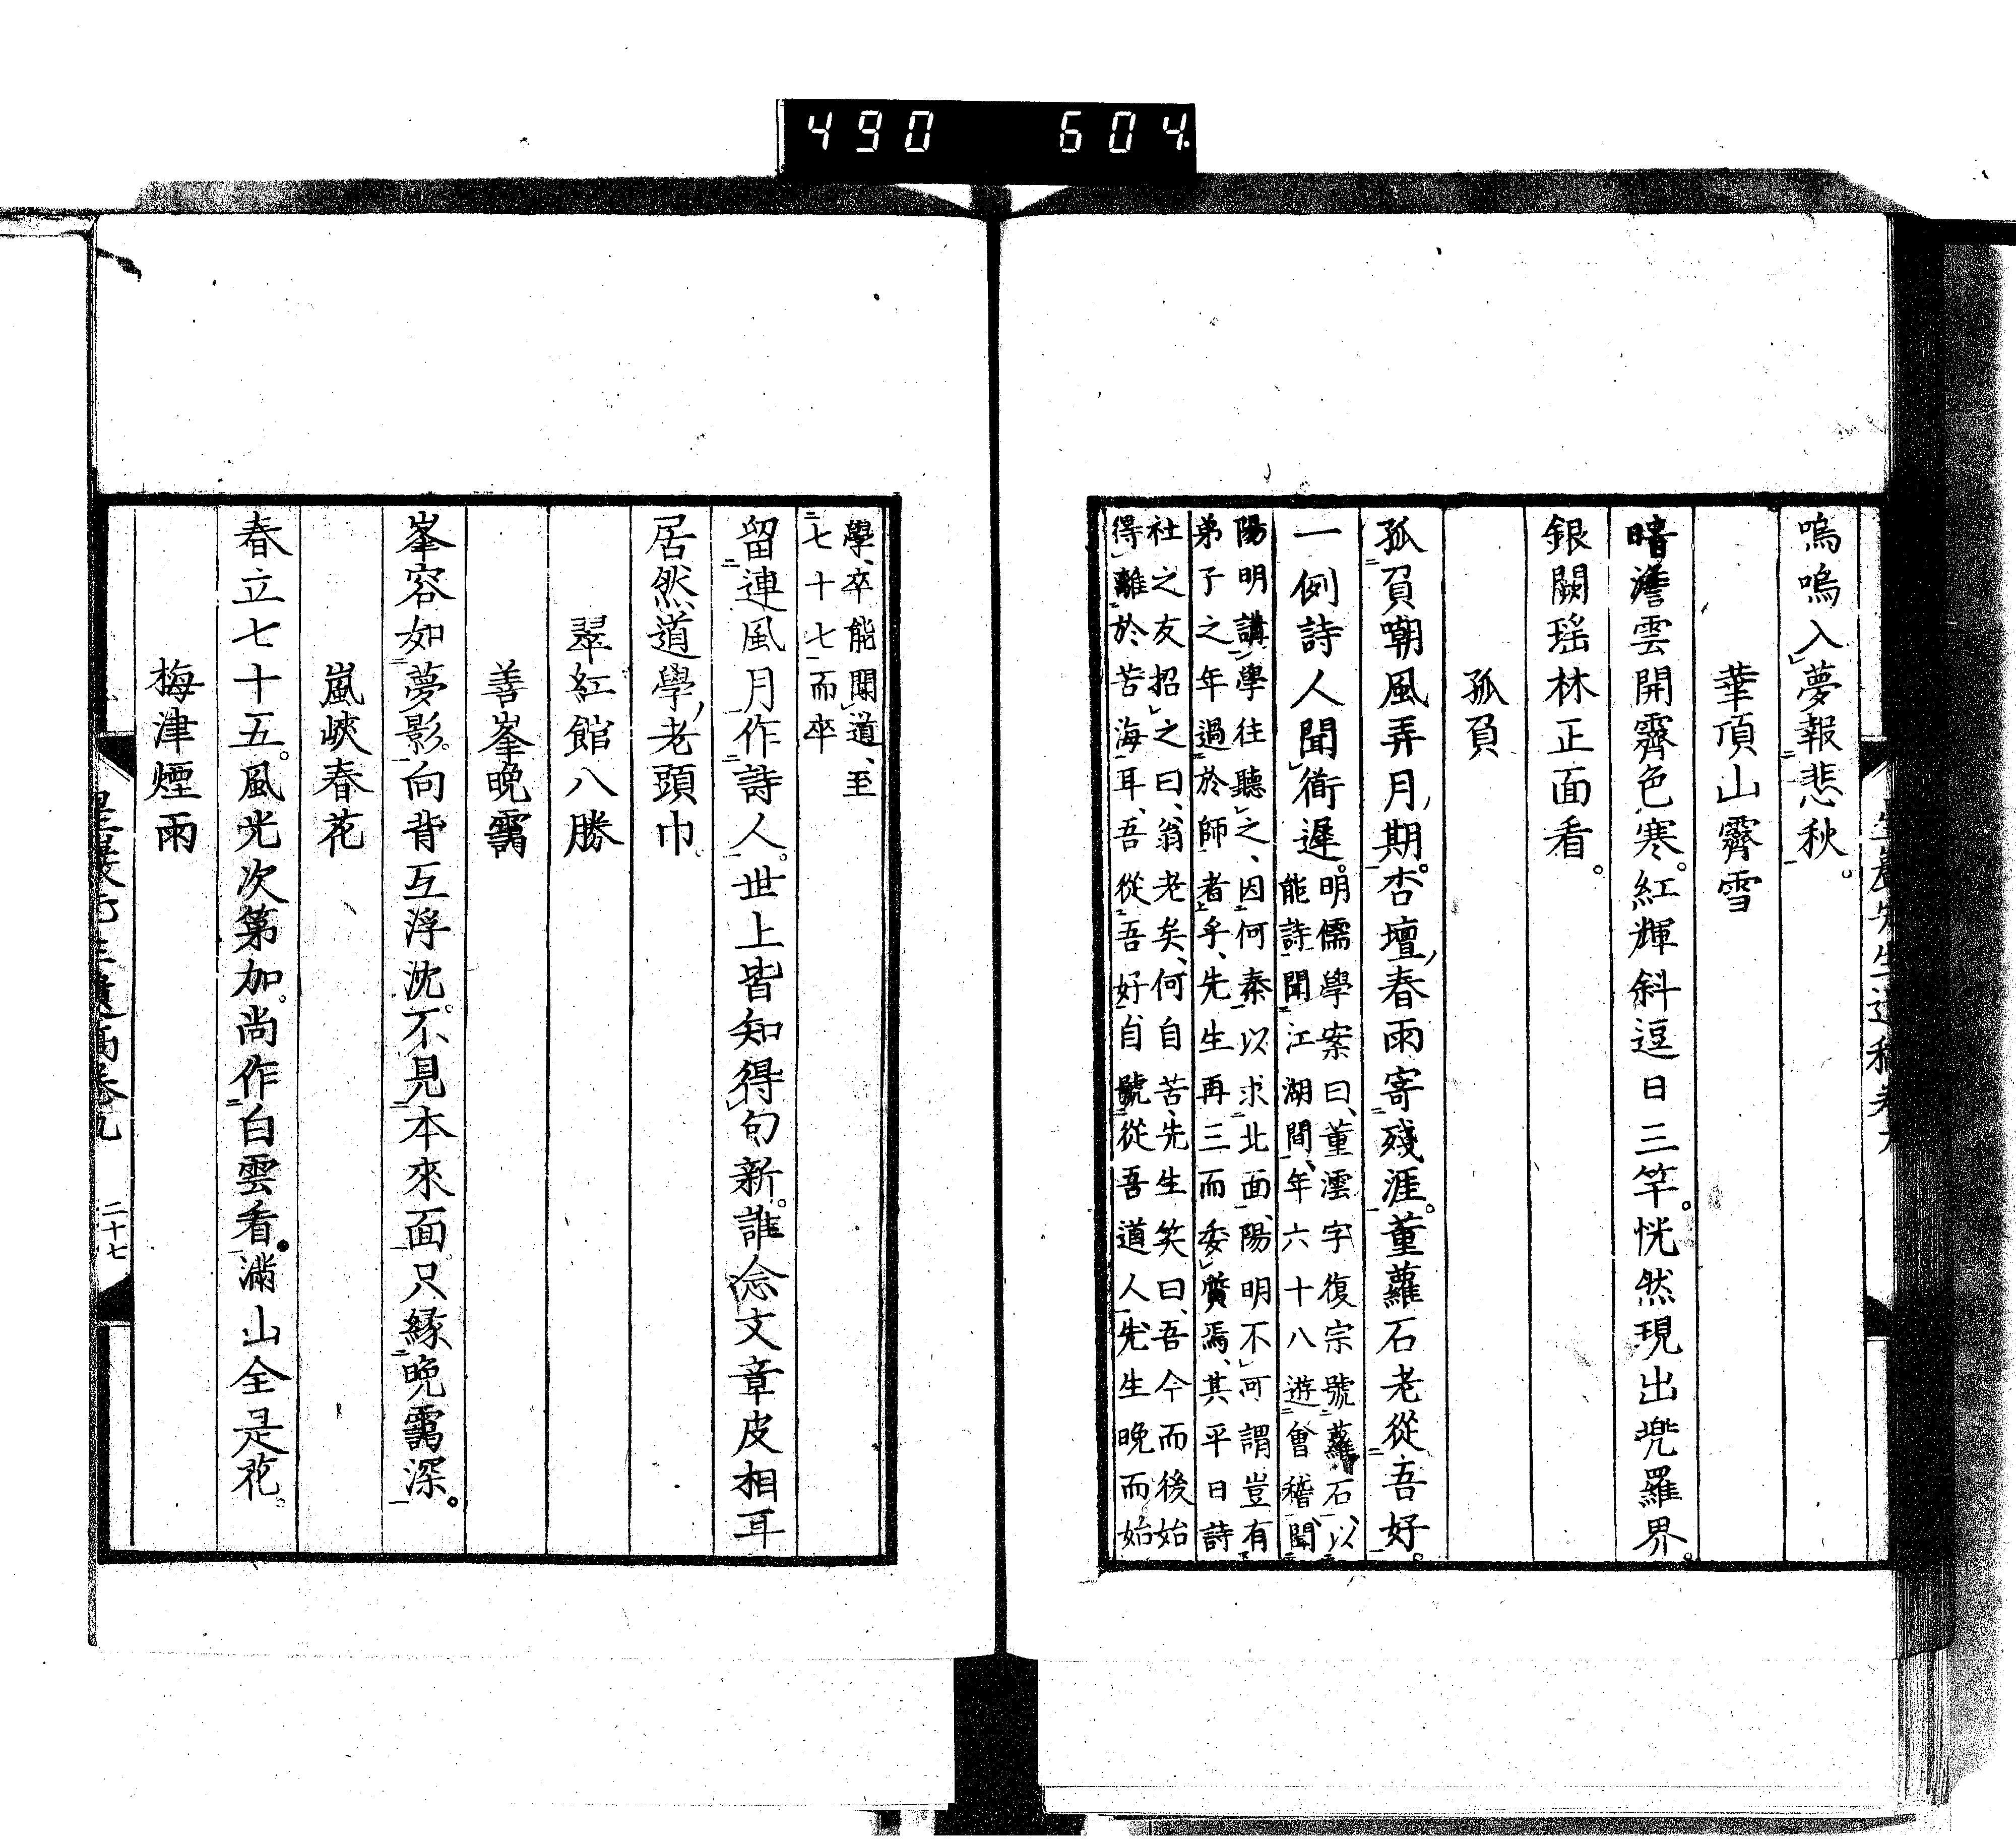 490 604
嗚嗚入夢報悲秋。
華頂山霽雪
暗澹雲開霽色寒。紅輝斜逗日三竿。恍然現出兜羅界。
銀闕瑶林正面看。
孤負
孤負嘲風弄月期。杏壇春雨寄殘涯。董蘿石老從吾好。
一例詩人聞衜遲。明儒學案曰、董澐字復宗號蘿石、以
能詩聞江湖間、年六十八遊會稽、聞
陽明講學往聽之、因何秦以求北面、陽明不可謂豈有
弟子之年過於師者乎、先生再三而委質焉、其平日詩
社之友招之曰、翁老矣、何自苦、先生笑曰、吾今而後始
得離於苦海耳、吾從吾好自號從吾道人先生晚而始
學、卒能聞道、至
七十七而卒
留連風月作詩人。世上皆知得句新。誰念文章皮相耳
居然道學老頭巾。
翠紅館八勝
善峯晚靄
峯容如夢影。向背互浮沈。不見本來面。只緣晚靄深。
嵐峽春花
春立七十五。風光次第加。尚作白雲看。滿山全是花。
梅津煙雨
二十七